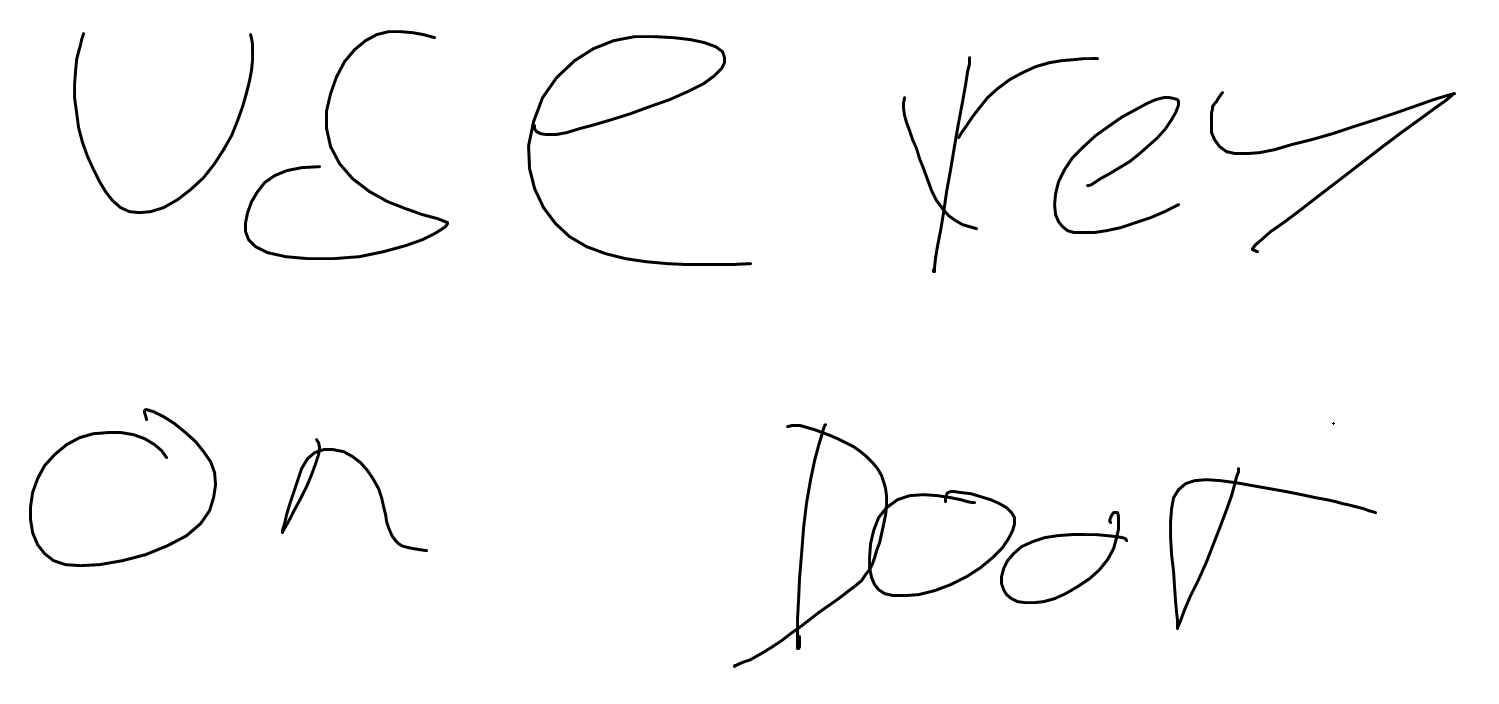 use key
on Door